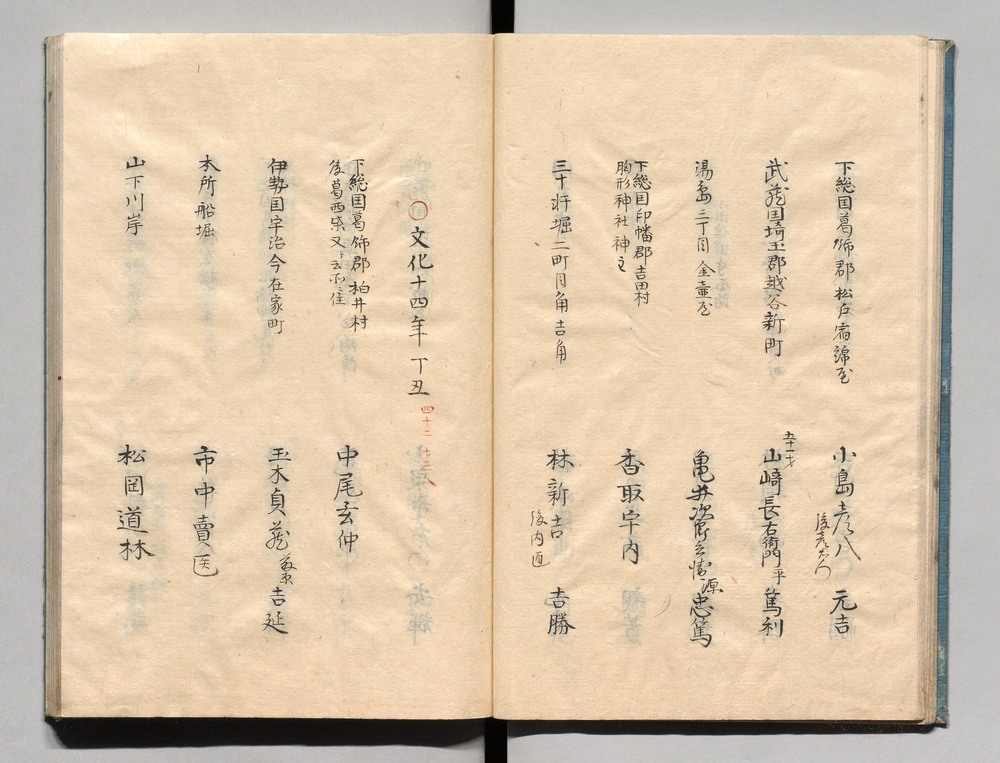 下総国葛飾郡松戸宿綿屋
小島彦八 元吉
後彦右衛門
武蔵国埼玉郡越谷新町
五十一才
山崎長右衛門 平篤利
湯島三丁目 金壷屋
亀井次郎 源忠篤
下総国印幡郡吉田村
胸形神社神主
香取宇内
三十軒堀二町目角吉角
林新吉 吉勝
後内匠
〇文化十四年丁丑
四十二
下総国葛飾郡柏井村
後葛西柴又
中尾玄仲
伊勢国宇治今在家町
玉木貞蔵 吉延
本所船堀
市中賣医
山下川岸
松岡道林